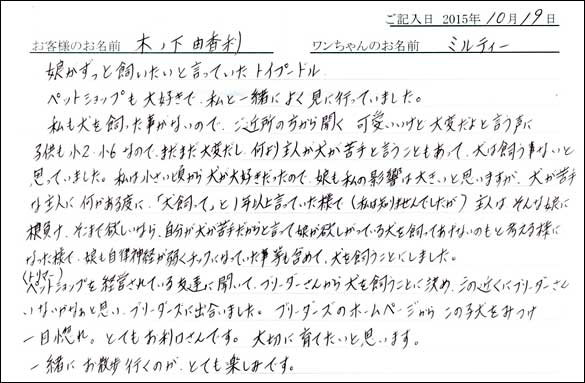 ご記入日 2015年10月19日
お客様のお名前 木ノ下 由香利 ワンちゃんのお名前 ミルティー
娘がずっと飼いたいと言っていたトイプードル
ペットショップも大好きで、私と一緒によく見に行っていました。
私も犬を飼った事がないので、ご近所の方から聞く 可愛いいけど大変だよと言う声に
子供も小2・小6なので、まだまだ大変だし、何より主人が犬が苦手と言うこともあって、犬は飼う事ないと
思っていました。私は小さい頃から犬が大好きだったので、娘も私の影響は大きいと思いますが、犬が苦手
な主人に何かある度に、「犬飼って」と1年以上言っていた様で(私は知りませんでしたが)主人はそんな娘に
根負け、そこまで欲しいなら、自分が犬が苦手だからと言って娘が欲しがっている犬を飼ってあげないのもと考える様に
なった様で、娘も自律神経が弱くチックになっていた事等も含めて、犬を飼うことにしました。
(トリマー)
ペットショップを経営されている友達に聞いて、ブリーダーさんから犬を飼うことに決め、この近くにブリーダーさん
いないかなぁと思い、ブリーダーズに出合いました。ブリーダーズのホームページからこの子犬をみつけ
一目惚れ。とてもお利口さんです。大切に育てたいと思います。
一緒にお散歩行くのが、とても楽しみです。